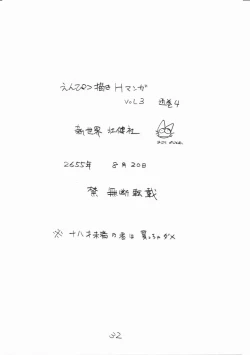 えんぴつ描きHマンガ
VOL.3 通巻4
新世界社健社
2655年 8月20日
禁 無断転載
※ 十八才未満の者は買っちゃダメ
32